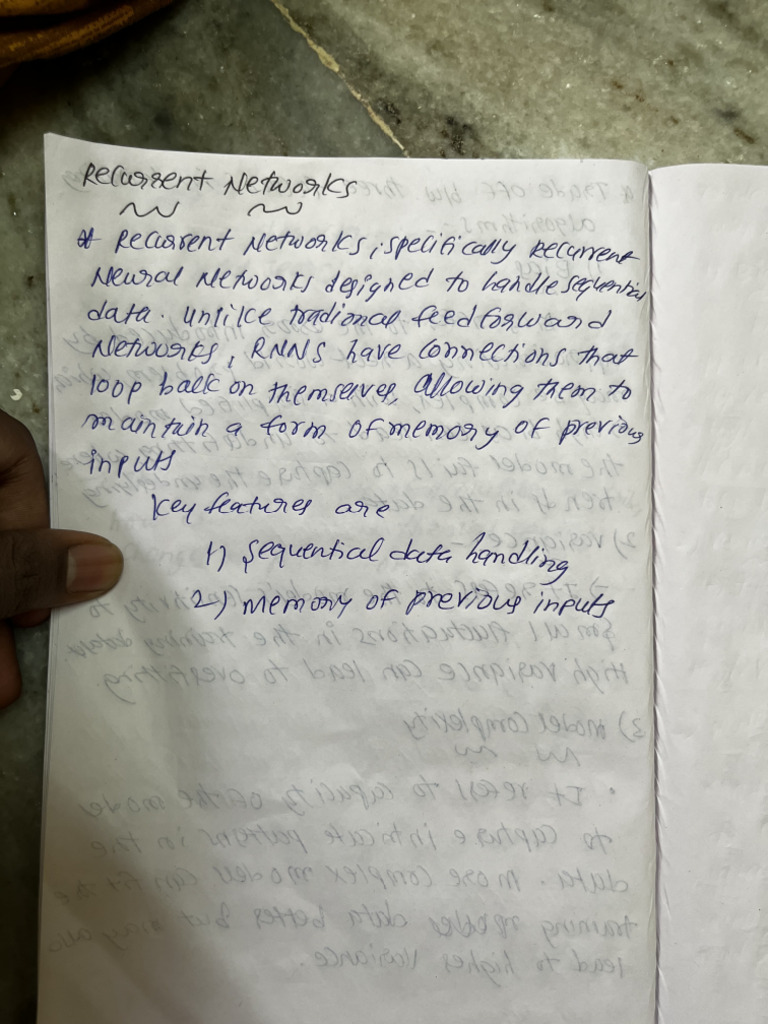 Recurrent Networks
* Recurrent Networks, specifically Recurrent
Neural Networks designed to handle sequential
data. Unlike tradional feed forward
Networks, RNNs have connections that
loop back on themselves, allowing them to
maintain a form of memory of previous
inputs
Key features are
1) Sequential data handling
2) Memory of previous inputs